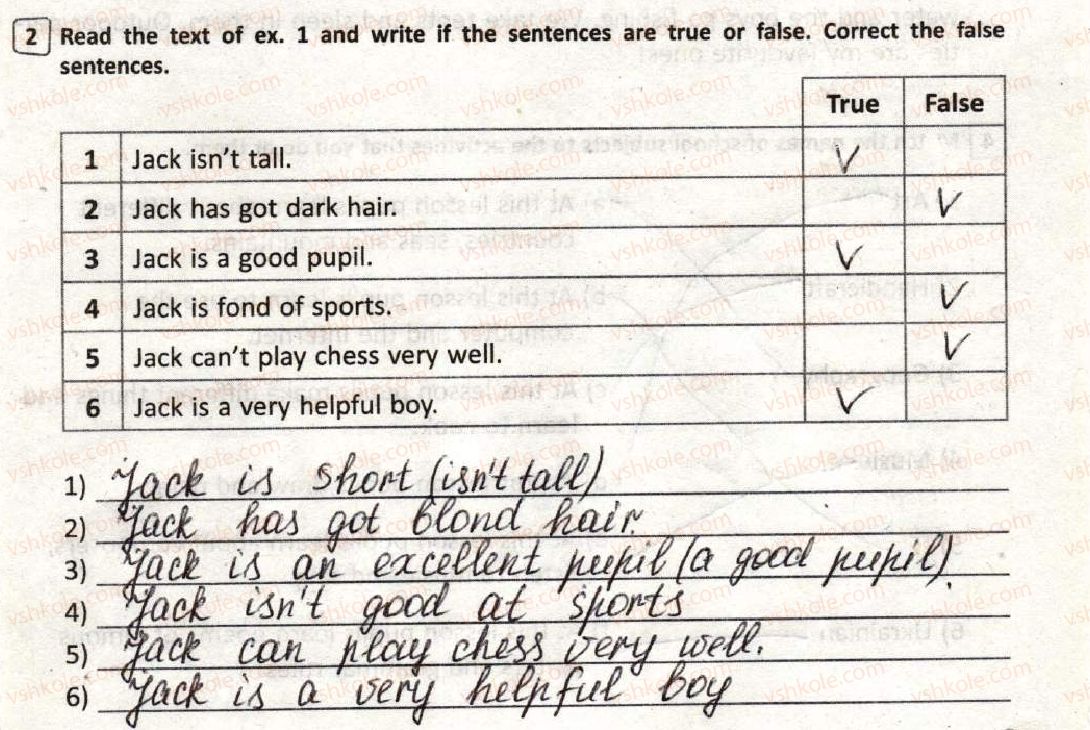 2 Read the text of ex. 1 and write if the sentences are true or false. Correct the false
sentences.
True False
1 Jack isn't tall. V
2 Jack has got dark hair. V
3 Jack is a good pupil. V
4 Jack is fond of sports. V
5 Jack can't play chess very well. V
6 Jack is a very helpful boy. V
1) Jack is short (isn't tall)
2) Jack has got blond hair.
3) Jack is an excellent pupil (a good pupil).
4) Jack isn't good at sports
5) Jack can play chess very well.
6) Jack is a very helpful boy
vshkole.com